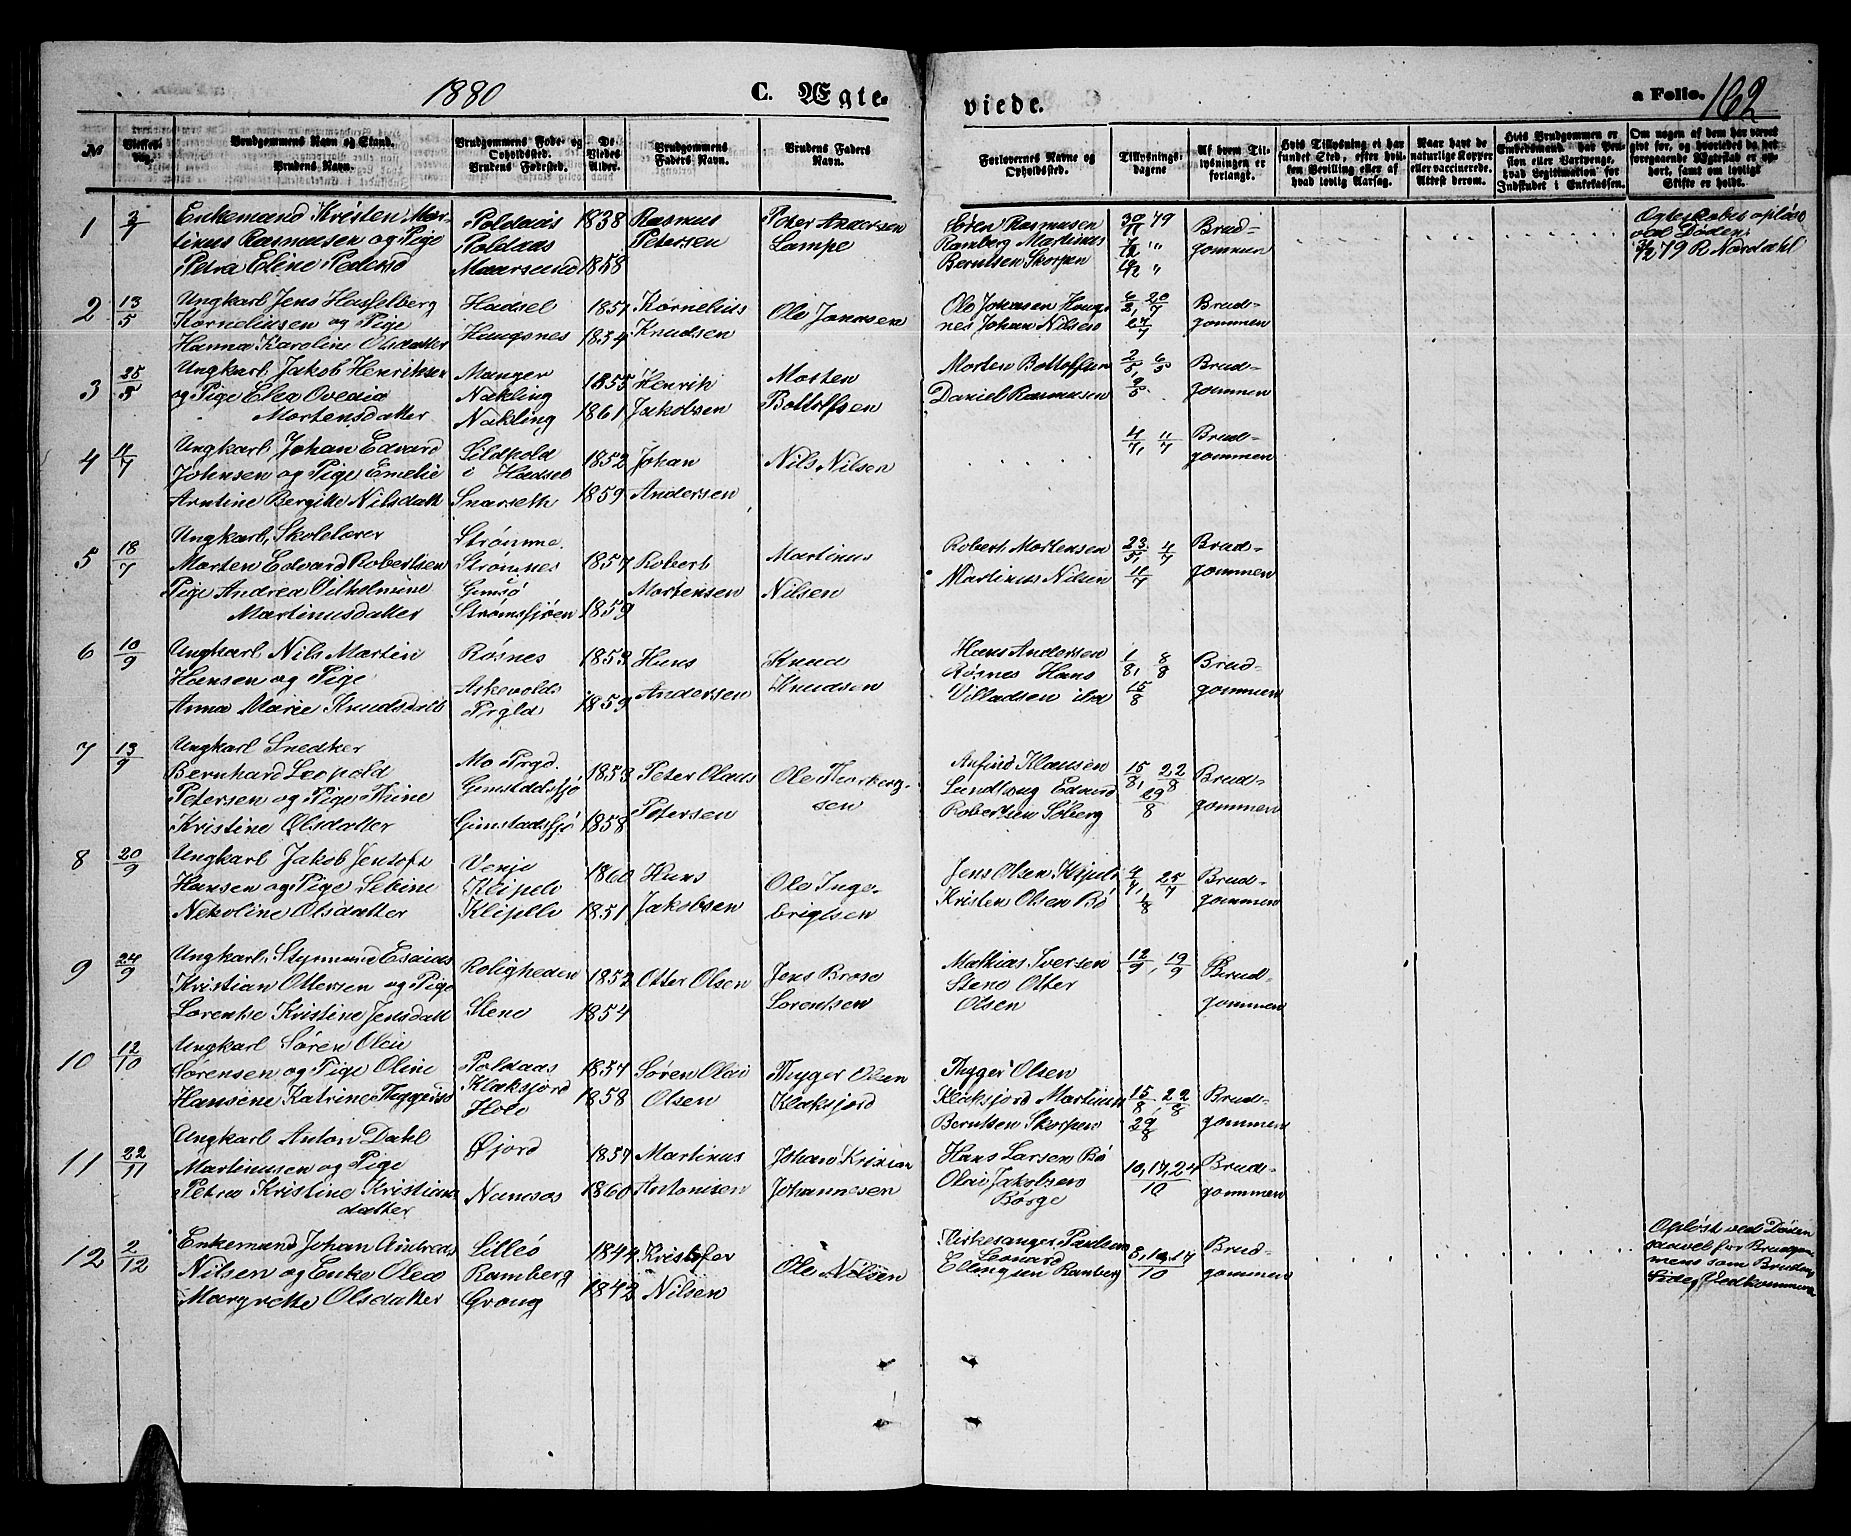 1880
C. Ægte-
viede.
a Folio. 162
No
Vielses-Dag.
Brudgommens Navn og Stand.
Brudens Navn.
Brudgommens Føde- og
Opholdssted.
Brudens Fødested.
De
Viedes
Alder.
Brudgommens
Faders Navn.
Brudens Faders
Navn.
Forlovernes Navne og
Opholdssted.
Tillysnings-
dagene
Af hvem Til-
lysningen er
forlangt.
Hvis Tillysning ei har
fundet Sted, efter hvil-
ken Bevilling eller af
hvad lovlig Aarsag.
Naar havt de
naturlige Kopper
eller vaccinerede.
Attest derom.
Hvis Brudgommen er
Embedsmand har Pen-
sion eller Vartpenge,
hvad Legitimation for
Indskudet i Enkekassen.
Om nogen af dem har været
gift før, og hvorledes da det
foregaaende Ægteskab er op-
hørt, samt om lovligt
Skifte er holdt.
1
Enkemand Kristen Mar-
tinus Rasmusen og Pige
Petra Eline Pedersd
Poldaas
Poldaas
1838
1858
Rasmus
Petersen
Peter Andersen
Lampe
Sören Rasmusen
Ramberg Martinus
Berntsen Skorpen
30/11 79
Brud-
gommen
Ægteskabet opløst
ved Døden
79 R. Nordahl
2
13/5
Ungkarl Jens Hasselberg
Korneliussen og Pige
Hanna Karoline Olsdatter
Hadsel
Haugsnes
1851
1854
Kornelius
Knudsen
Ole Jonssen
Ole Johansen Haugs
nes Johan Nilsen
Brud-
gommen
3
25/5
Ungkarl Jakob Henriksen
og Pige Elea Ovedia
Mortensdatter
Manger
Nakling
Nakling
1855
1861
Henrik
Jakobsen
Morten
Bottolfsen
Morten Bottolfsen
Daniel Rasmusen
2/5, 6/5
9/5
Brud-
gommen
4
11/7
Ungkarl Johan Edvard
Johnsen og Pige Emelie
Arntine Bergitte Nilsdatt
Sildpold
i Hadsel
Snarseth
1852
1859
Johan
Andersen
Nils Nilsen
4/7, 11/7
Brud-
gommen
5
18/7
Ungkarl, Skolelærer
Morten Edvard Robertsen
Pige Andrea Vilhelmine
Martinusdatter
Strømme
Strømnes
Gimsö
Strömsfjøen
1857
1859
Robert
Mortensen
Martinus
Nilsen
Robert Mortensen
Martinus Nilsen
23/5, 4/7
11/7
Brud-
gommen
6
10/9
Ungkarl Nils Martin
Hansen og Pige
Anna Marie Knudsdatt
Røsnes
Askevolds
Prgld
1853
1859
Hans
Andersen
Knud
Knudsen
Hans Andersen
Røsnes Hans
Villadsen ibd
1/8, 8/8
15/8
Brud-
gommen
7
13/9
Ungkarl Snedker
Bernhard Leopold
Petersen og Pige Thine
Kristine Olsdatter
Mo Prgd.
Gimstadsfjø
Gimstadsfjø
1853
1858
Peter Olaus
Petersen
Ole Thorberg-
sen
Anfind Klausen
Edvard
Robertsen Søberg
15/8, 22/8
29/8
Brud-
gommen
8
20/9
Ungkarl Jakob Jentoft
Hansen og Pige Sebine
Nekoline Olsdatter
Klipelv
1860
1851
Hans
Jakobsen
Ole Inge-
brigtsen
Jens Olsen Klipelv
Kristen Olsen Bö
25/7
1/8
Brud-
gommen
9
24/9
Ungkarl, Styrmand Esaias
Kristian Ottersen og Pige
Lorentze Kristine Jensdatt
Roligheden
Stene
1852
1854
Otter Olsen
Jens Brose
Lorentsen
Mathias Iversen
Stene Otter
Olsen
12/9, 19/9
Brud-
gommen
10
12/10
Ungkarl Søren Olai
Sørensen og Pige Oline
Hansene Katrine
Poldaas
Klaksjord
Hole
1854
1858
Søren Olai
Olsen
Thyger Olsen
Klaksjord
Thyger Olsen
Klaksjord Martinus
Berntsen Skorpen
15/8, 22/8
29/8
Brud-
gommen
11
22/11
Ungkarl Anton Dahl
Martinusen og Pige
Petra Kristine Kristians
datter
Øfjord
Namsos
1857
1860
Martinus
Antonisen
Johan Kristian
Johannesen
Hans Larsen Bö
Olai Jakobsen
Börge
10, 17, 24/10
Brud-
gommen
12
2/12
Enkemand Johan Andreas
Nilsen og Enke Olea
Margrethe Olsdatter
Lilleö
Ramberg
Grong
1844
1842
Kristofer
Nilsen
Ole Nilsen
Kirkesanger Paulsen
Leonard
Elingsen Ramberg
3, 10, 17/10
Brud-
gommen
Opløst ved Døden
saavel for Brudgom
mens som Brudens